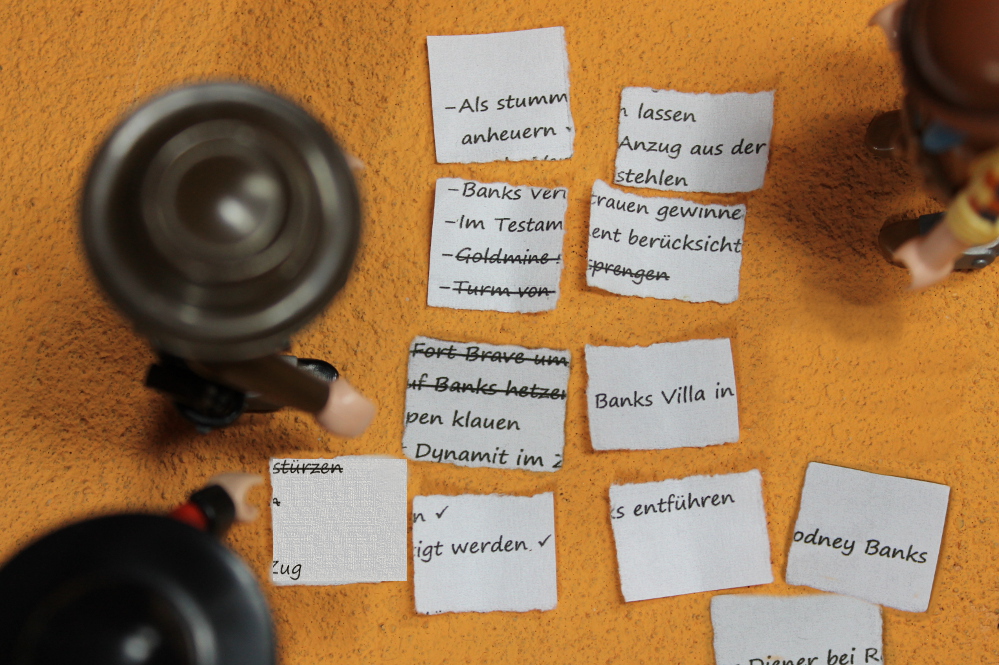 -Als stumm
anheuern
n lassen
Anzug aus der
stehlen
-Banks ver
-Im Testam
-Goldmine
-Turm von
trauen gewinne
ent berücksicht
sprengen
Fort Brave um
uf Banks hetzen
pen klauen
Dynamit im Z
Banks Villa in
stürzen
Zug
n ✓
igt werden. ✓
s entführen
odney Banks
Diener bei R